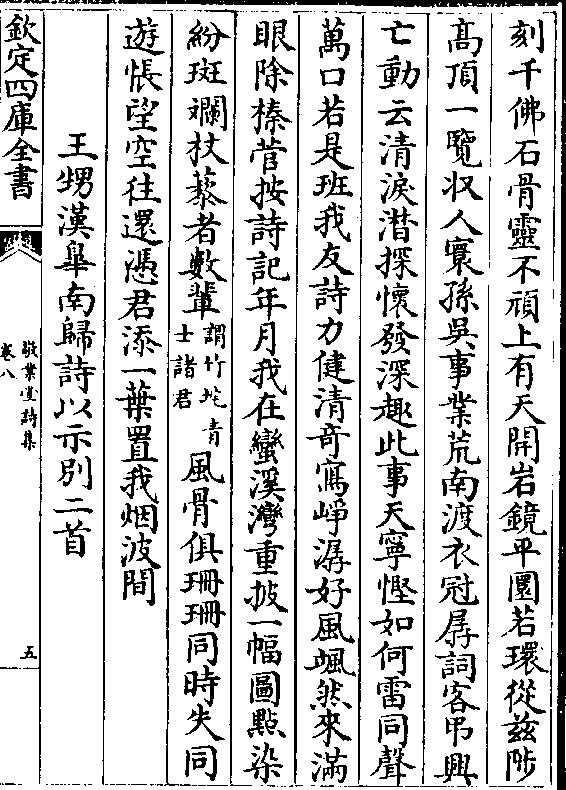 刻千佛石骨靈不頑上有天開岩鏡平圓若環從兹陟
髙頂一覽収人寰孫吳事業荒南渡衣冠孱詞客弔興
亡動云清淚潸探懷發深趣此事天寧慳如何雷同聲
萬口若是班我友詩力健清竒寫崢潺好風颯然來滿
眼除榛菅按詩記年月我在蠻溪灣重披一幅圖㸃染
紛斑斕杖藜者數輩謂竹垞青士諸君風骨俱珊珊同時失同
遊悵望空往還憑君添一葉置我烟波間
王甥漢臯南歸詩以示别二首
欽定四庫全書
敬業堂詩集
卷八
五